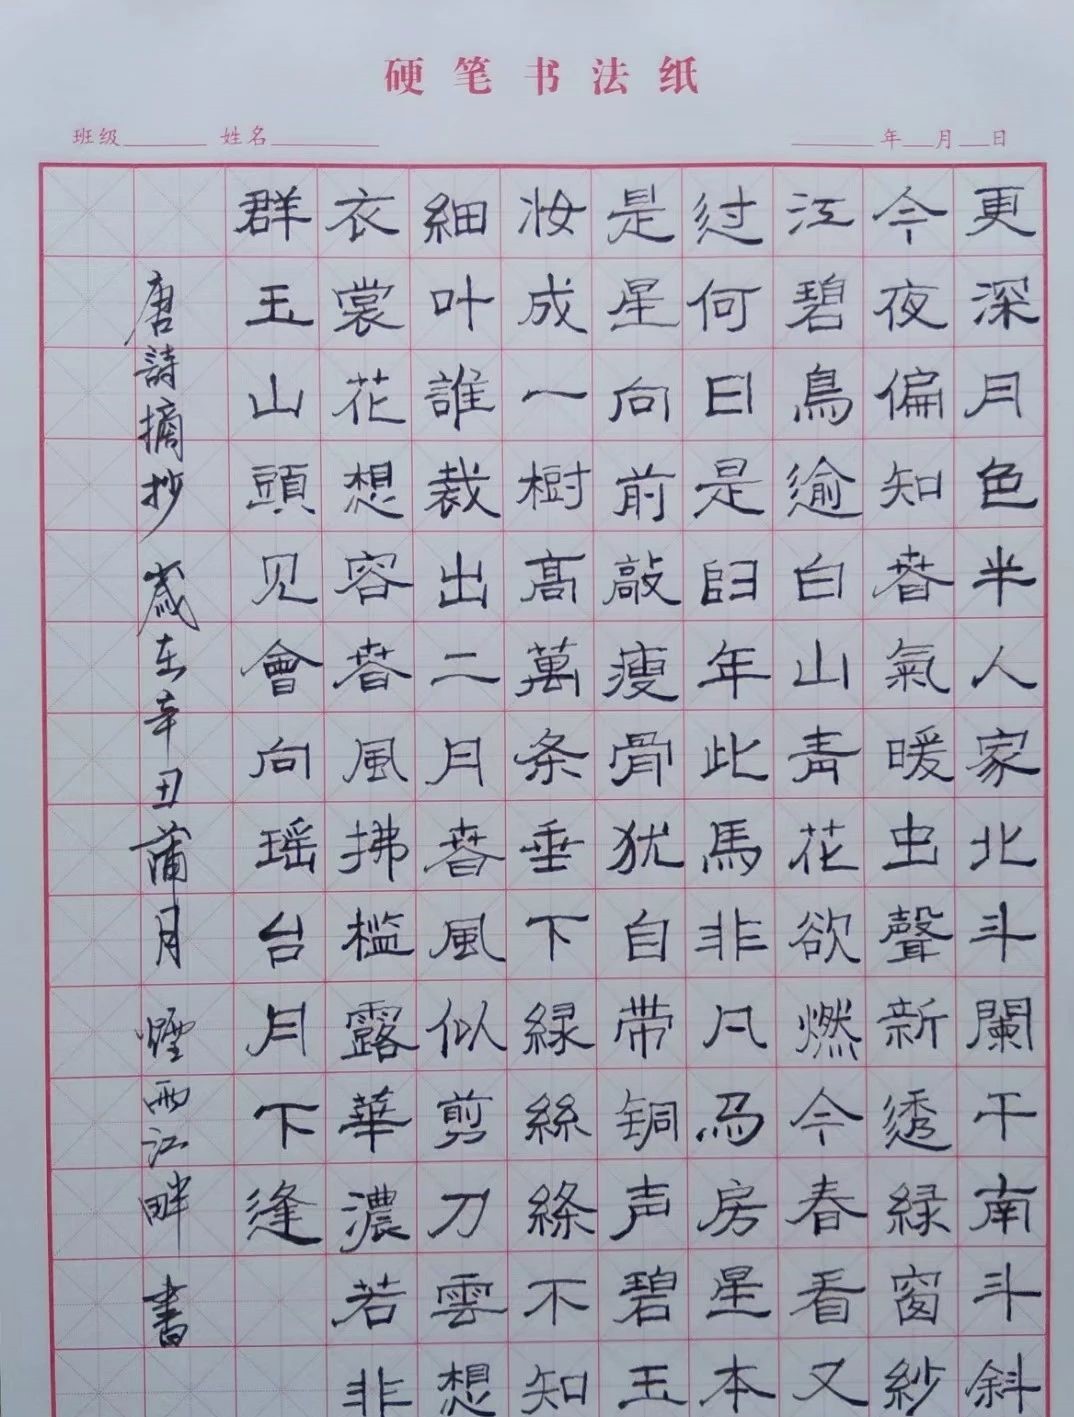 硬笔书法纸
班级 姓名 年 月 日
更深月色半人家北斗闌干南斗斜
今夜偏知春氣暖虫聲新透緑窗紗
江碧鳥逾白山青花欲燃今春看又
过何日是归年此馬非凡马房星本
是星向前敲瘦骨犹自带铜声碧玉
妆成一樹高萬条垂下緑絲絛不知
細叶誰裁出二月春風似剪刀雲想
衣裳花想容春風拂槛露華濃若非
群玉山頭见會向瑶台月下逢
唐詩摘抄 歲在辛丑蒲月 煙雨江畔 書